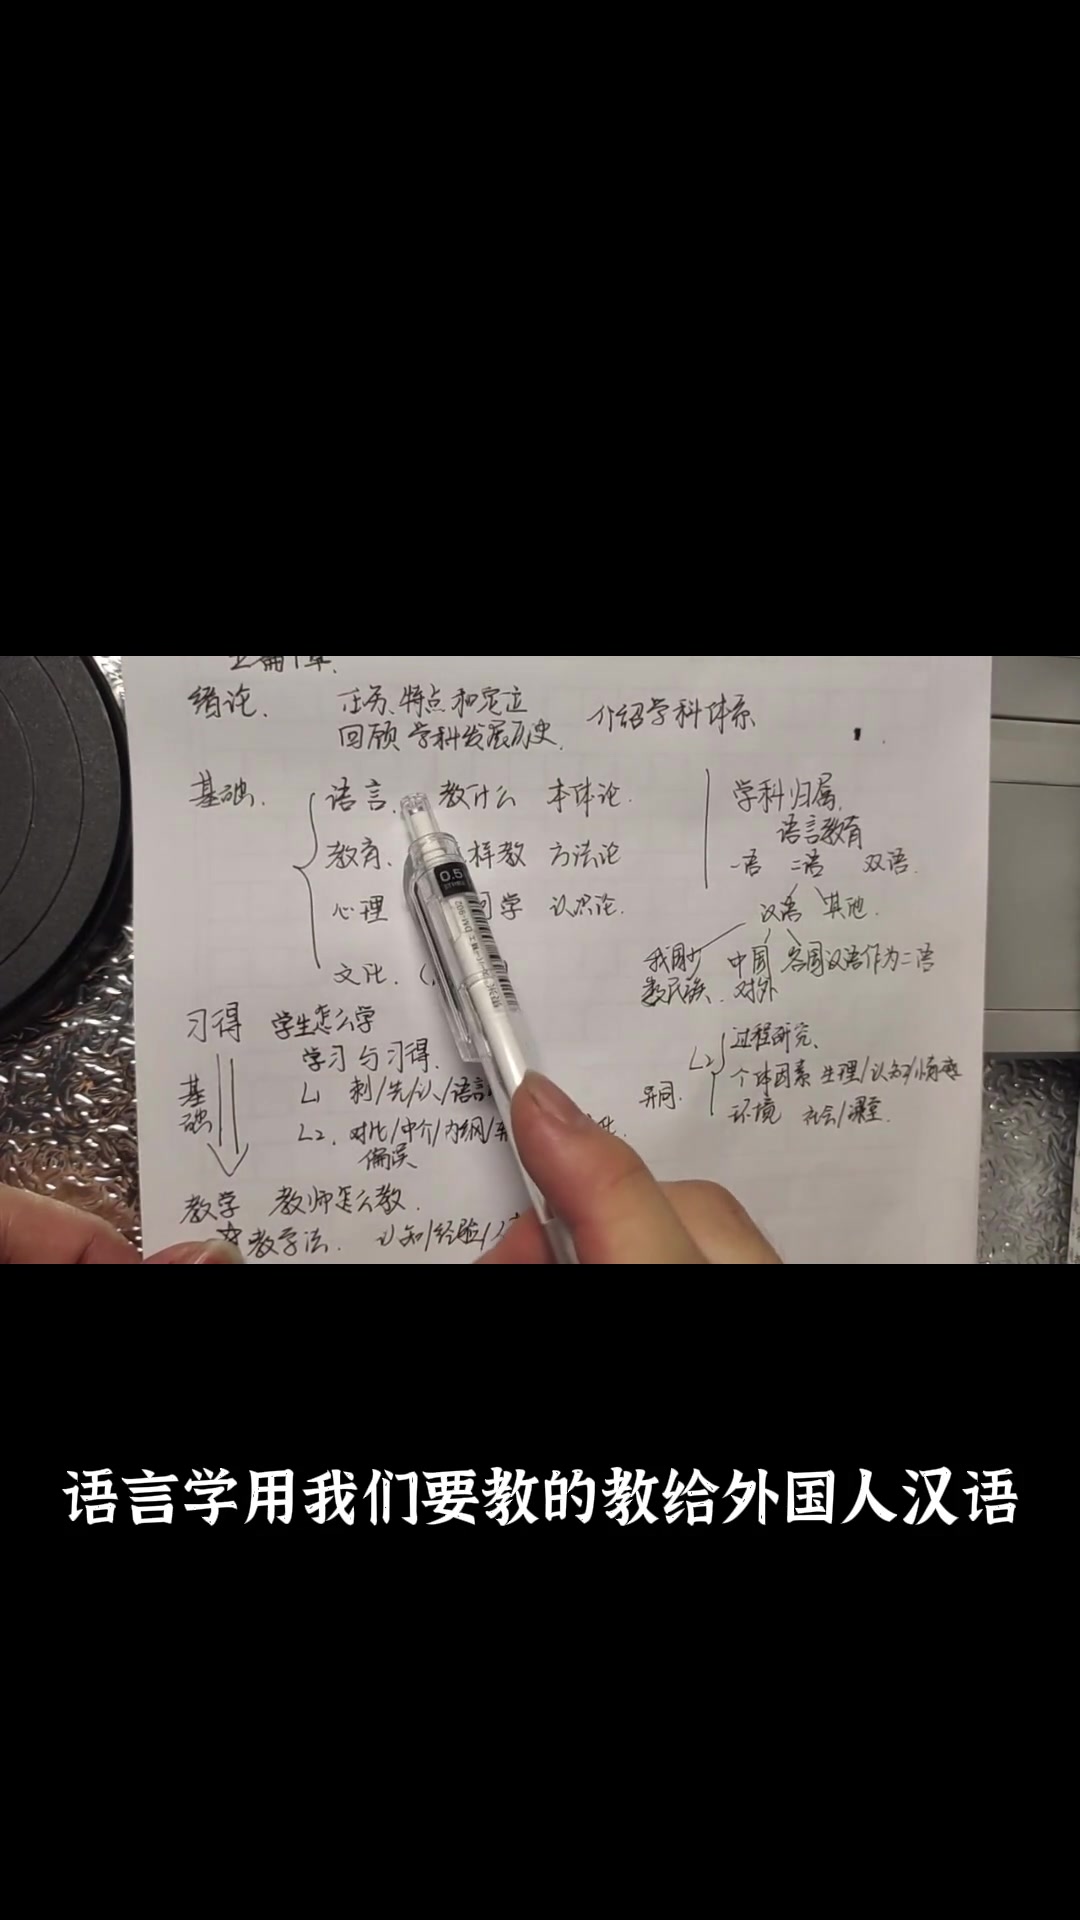 绪论. 任务、特点和定位
回顾学科发展历史. 介绍学科体系
基础. 语言. 教什么 本体论.
教育. 样教 方法论
心理 学 认识论.
文化.
学科归属.
语言教育
一语 二语 双语.
汉语 其他.
我国少数民族. 中国对外 各国汉语作为二语
习得 学生怎么学
学习与习得.
L1 刺/先/认/语言
L2. 对比/中介/内/
偏误
异同. L2
过程研究、
个体因素 生理/认知/情感
环境 社会/课堂.
基础
教学 教师怎么教.
教学法. 认知/经验/
0.5
语言学用我们要教的教给外国人汉语